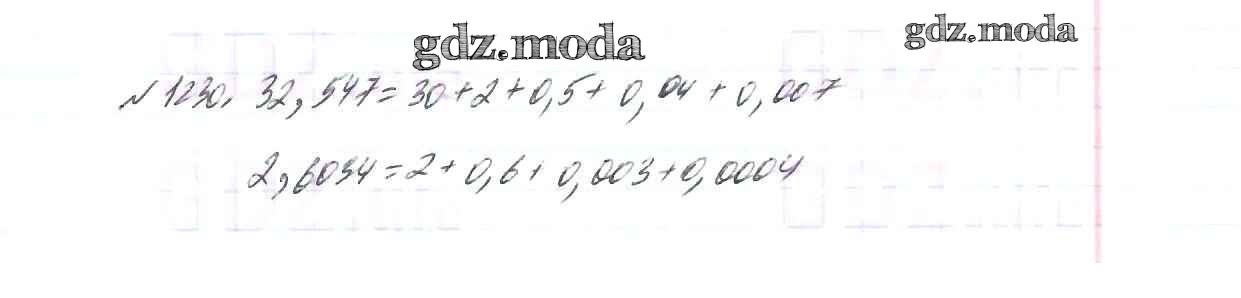 gdz.moda
gdz.moda
№1230. 32,547=30+2+0,5+0,04+0,007
2,6034=2+0,6+0,003+0,0004